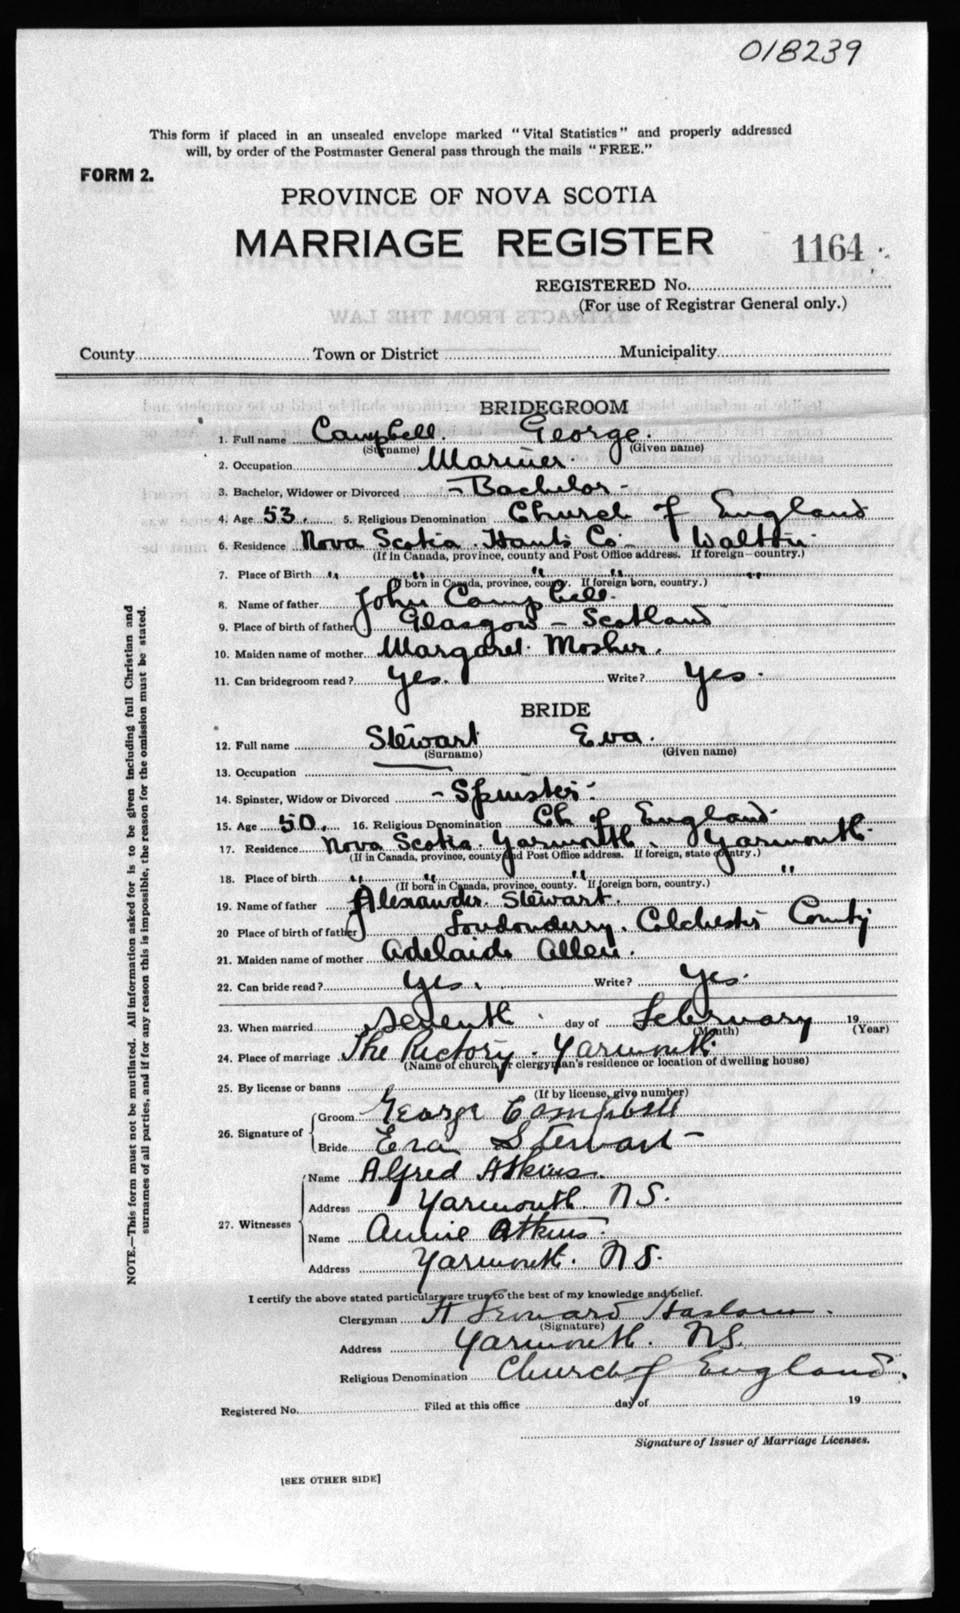 018239
This form if placed in an unsealed envelope marked "Vital Statistics" and properly addressed
will, by order of the Postmaster General pass through the mails "FREE."
FORM 2.
PROVINCE OF NOVA SCOTIA
MARRIAGE REGISTER 1164
REGISTERED No.
(For use of Registrar General only.)
County Town or District Municipality
BRIDEGROOM
1. Full name Campbell. George.
(Surname) (Given name)
2. Occupation Mariner
3. Bachelor, Widower or Divorced - Bachelor -
4. Age 53. 5. Religious Denomination Church of England
6. Residence Nova Scotia. Hants Co - Walton.
(If in Canada, province, county and Post Office address. If foreign—country.)
7. Place of Birth " " " " "
(If born in Canada, province, county. If foreign born, country.)
8. Name of father John Campbell.
9. Place of birth of father Glasgow - Scotland
10. Maiden name of mother Margaret Mosher.
11. Can bridegroom read? Yes. Write? Yes.
BRIDE
12. Full name Stewart Eva.
(Surname) (Given name)
13. Occupation
14. Spinster, Widow or Divorced - Spinster -
15. Age 50. 16. Religious Denomination Ch of England.
17. Residence Nova Scotia. Yarmouth. Yarmouth.
(If in Canada, province, county and Post Office address. If foreign, state country.)
18. Place of birth " " " "
(If born in Canada, province, county. If foreign born, country.)
19. Name of father Alexander Stewart.
20 Place of birth of father Londonderry. Colchester County
21. Maiden name of mother Adelaide Allen.
22. Can bride read? Yes. Write? Yes.
23. When married Seventh day of February 19
(Month) (Year)
24. Place of marriage The Rectory. Yarmouth.
(Name of church, clergyman's residence or location of dwelling house)
25. By license or banns
(If by license, give number)
26. Signature of Groom George Campbell
Bride Eva Stewart -
27. Witnesses Name Alfred Atkins.
Address Yarmouth. N.S.
Name Annie Atkins.
Address Yarmouth. N.S.
I certify the above stated particulars are true to the best of my knowledge and belief.
Clergyman H Leonard Haslam.
(Signature)
Address Yarmouth. N.S.
Religious Denomination Church of England.
Registered No. Filed at this office day of 19
Signature of Issuer of Marriage Licenses.
[SEE OTHER SIDE]
NOTE.—This form must not be mutilated. All information asked for is to be given including full Christian and
surnames of all parties, and if for any reason this is impossible, the reason for the omission must be stated.